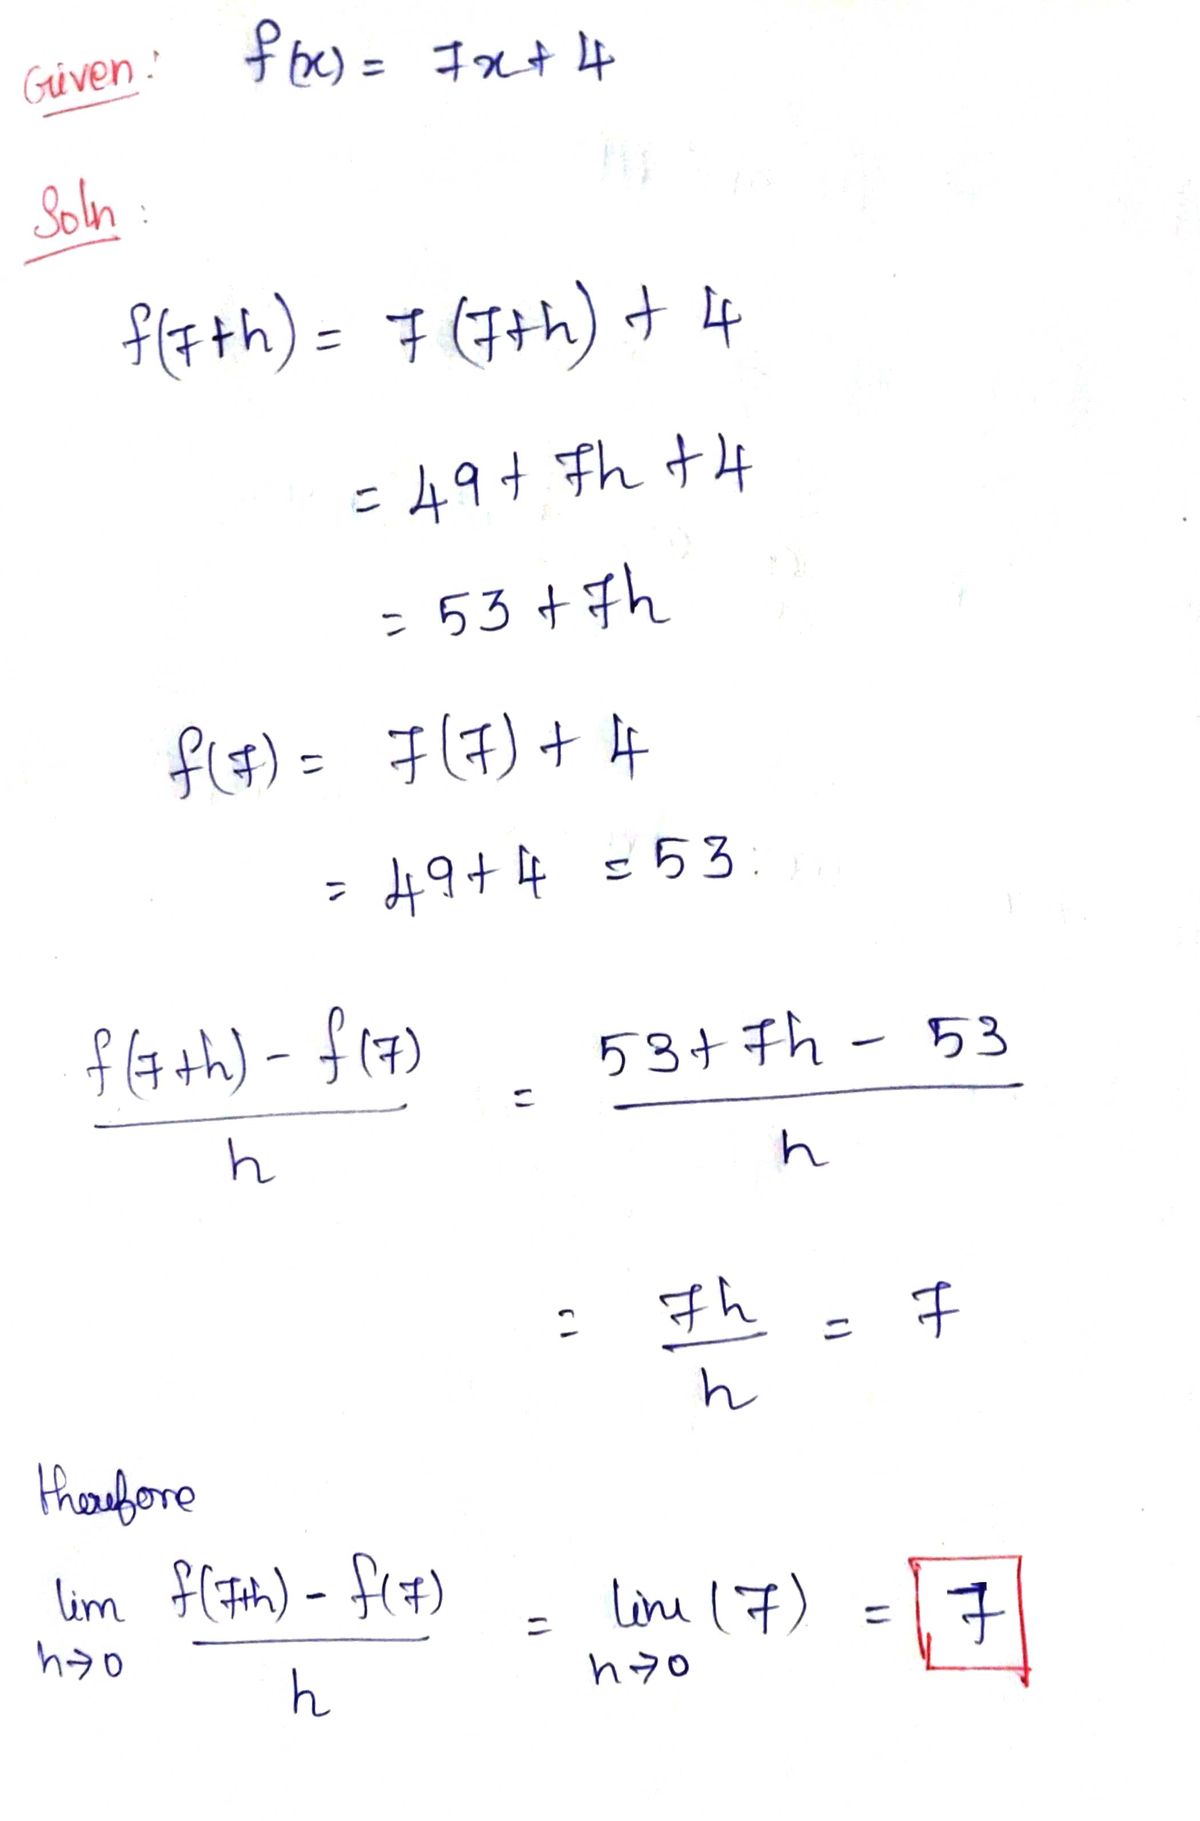 Given: f(x) = 7x + 4
Soln:
f(7+h) = 7(7+h) + 4
= 49 + 7h + 4
= 53 + 7h
f(7) = 7(7) + 4
= 49 + 4 = 53.
f(7+h) - f(7) / h = 53 + 7h - 53 / h
= 7h / h = 7
therefore
lim h→0 f(7+h) - f(7) / h = lim h→0 (7) = 7